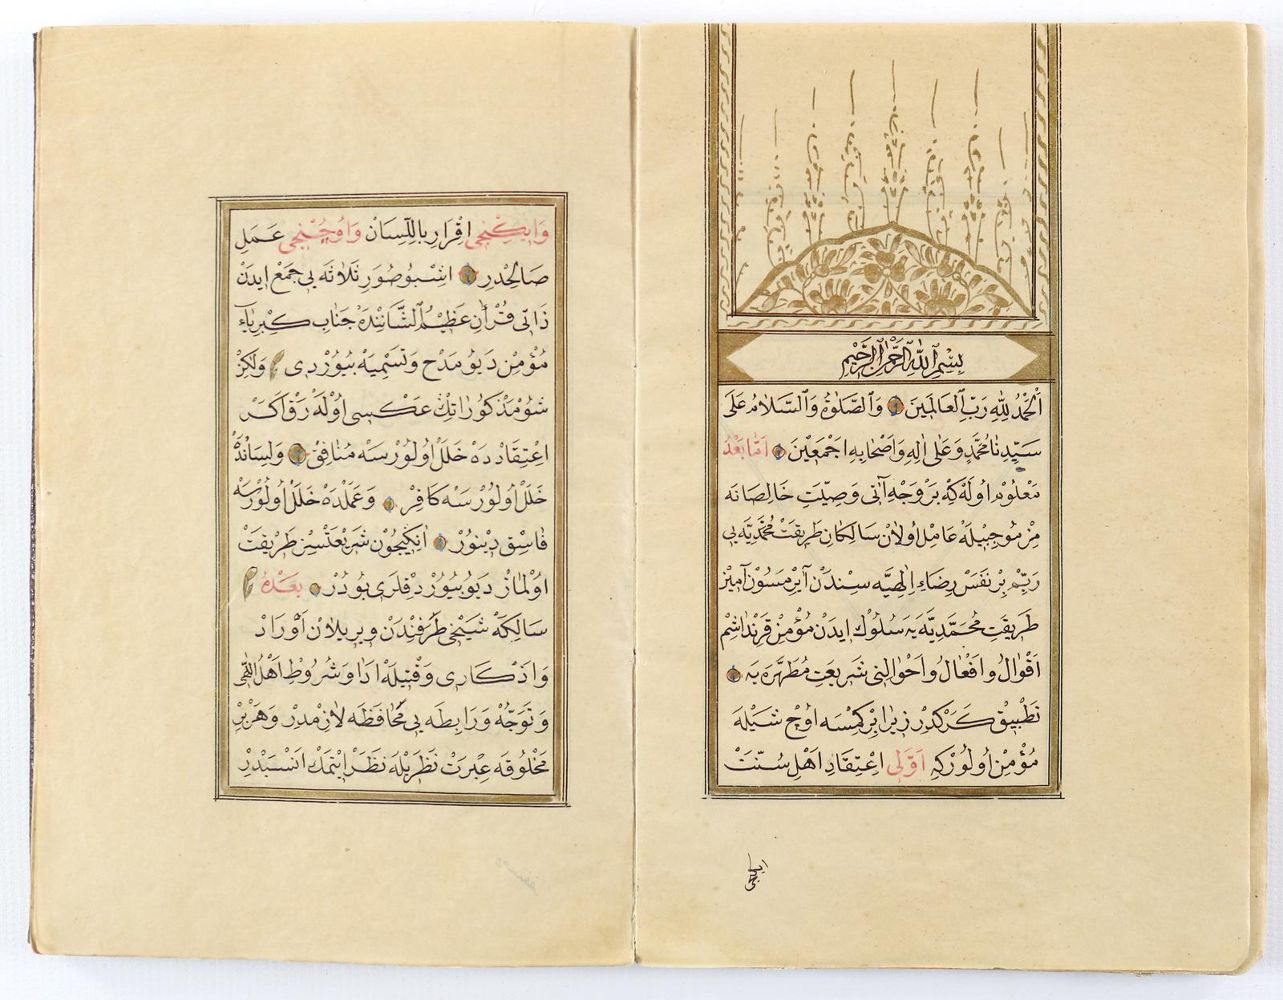 بِسْمِ اللّٰهِ الرَّحْمٰنِ الرَّحِيْمِ
اَلْحَمْدُ لِلّٰهِ رَبِّ الْعَالَمِيْنَ وَالصَّلٰوةُ وَالسَّلَامُ عَلٰى
سَيِّدِنَا مُحَمَّدٍ وَعَلٰى اٰلِهِ وَاَصْحَابِهِ اَجْمَعِيْنَ اَمَّا بَعْدُ
مَعْلُوْم اُولَه كِه بَرْ وَجْهِ آتِى وَصِيَّتِ خَالِصَانَه
مِزْ مُوْجِبِيْلَه عَامِلْ اُولَانْ سَالِكَانِ طَرِيقَتْ مُحَمَّدِيَّه بِى
رَبِّمْ بِرْ نَفَسْ رِضَاءِ اِلٰهِيَّه سِنْدَنْ آيِرْمَسُوْنْ آمِيْنْ
طَرِيقَتِ مُحَمَّدِيَّه يَه سُلُوْكْ اِيدَنْ مُؤْمِنْ قَرِنْدَاشِمْ
اَقْوَالُ وَاَفْعَالُ وَاَحْوَالِنِى شَرِيعَتِ مُطَهَّرَه يَه
تَطْبِيْقْ كَرَكْدُرْ زِيْرَا بِرْ كِمْسَه اُوْچْ شَيْئلَه
مُؤْمِنْ اُولُوْرْ كِه اَوَّلَى اِعْتِقَادِ اَهْلِ سُنَّتْ
وَاِيكِنْجِى اِقْرَارِ بِاللِّسَانْ وَاُوچُنْجِى عَمَلِ
صَالِحْدِرْ اِشْبُو صُوَرِ ثَلَاثَه بِى جَمْعْ اِيدَنْ
ذَاتِى قُرْاٰنِ عَظِيْمُ الشَّانْنْدَه جَنَابِ كِبْرِيَاءْ
مُؤْمِنْ دَيُو مَدْح وَتَسْمِيَه بُيُوْرْدِى وَلٰكِنْ
شُو مَذْكُوْرَاتِكْ عَكْسِى اُولَه رَقْ اَكَرْ
اِعْتِقَادْدَه خَلَلْ اُولُوْرْسَه مُنَافِقْ وَلِسَانْدَه
خَلَلْ اُولُوْرْسَه كَافِرْ وَعَمَلْدَه خَلَلْ اُولُوْرْسَه
فَاسِقْ دِيْنُوْرْ اَنِكْيچُوْن شَرِيعَتْسِزْ طَرِيقَتْ
اُوْلْمَازْ دَيُو بُيُوْرْدِقْلَرِى بُوْدُرْ بَعْدَهُ
سَالِكَه شَيْخِى طَرَفِنْدَنْ وِيرِيلَانْ اَوْرَادْ
وَاَذْكَارِى وَقْتِيْلَه اَدَا وَشُرُوْطِ اَهْلُ اللّٰهِى
وَتَوَجُّهْ وَرَابِطَه يِى مُحَافَظَه لَازِمْدِرْ وَهَرْ بِرْ
مَخْلُوْقَه عِبْرَتْ نَظَرِيْلَه نَظَرْ اِيْتمَكْ